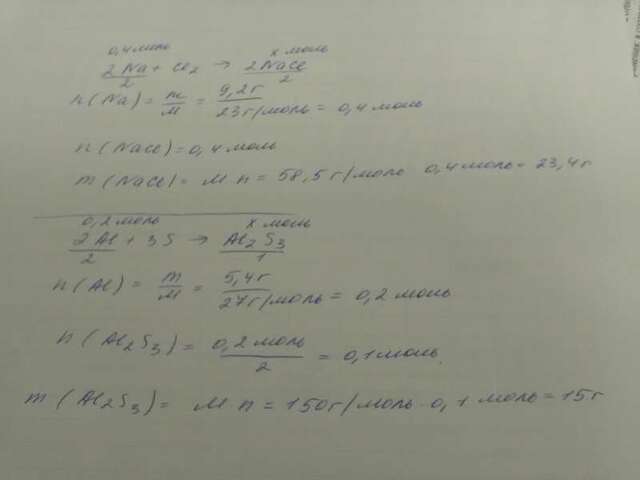 0,4 моль x моль
2Na + Cl₂ → 2NaCl
2 2
n(Na) = m/M = 9,2г/23г/моль = 0,4 моль
n(NaCl) = 0,4 моль
m(NaCl) = M·n = 58,5г/моль 0,4 моль = 23,4г
0,2 моль x моль
2Al + 3S → Al₂S₃
2 1
n(Al) = m/M = 5,4г/27г/моль = 0,2 моль
n(Al₂S₃) = 0,2 моль/2 = 0,1 моль
m(Al₂S₃) = M·n = 150г/моль·0,1 моль = 15г